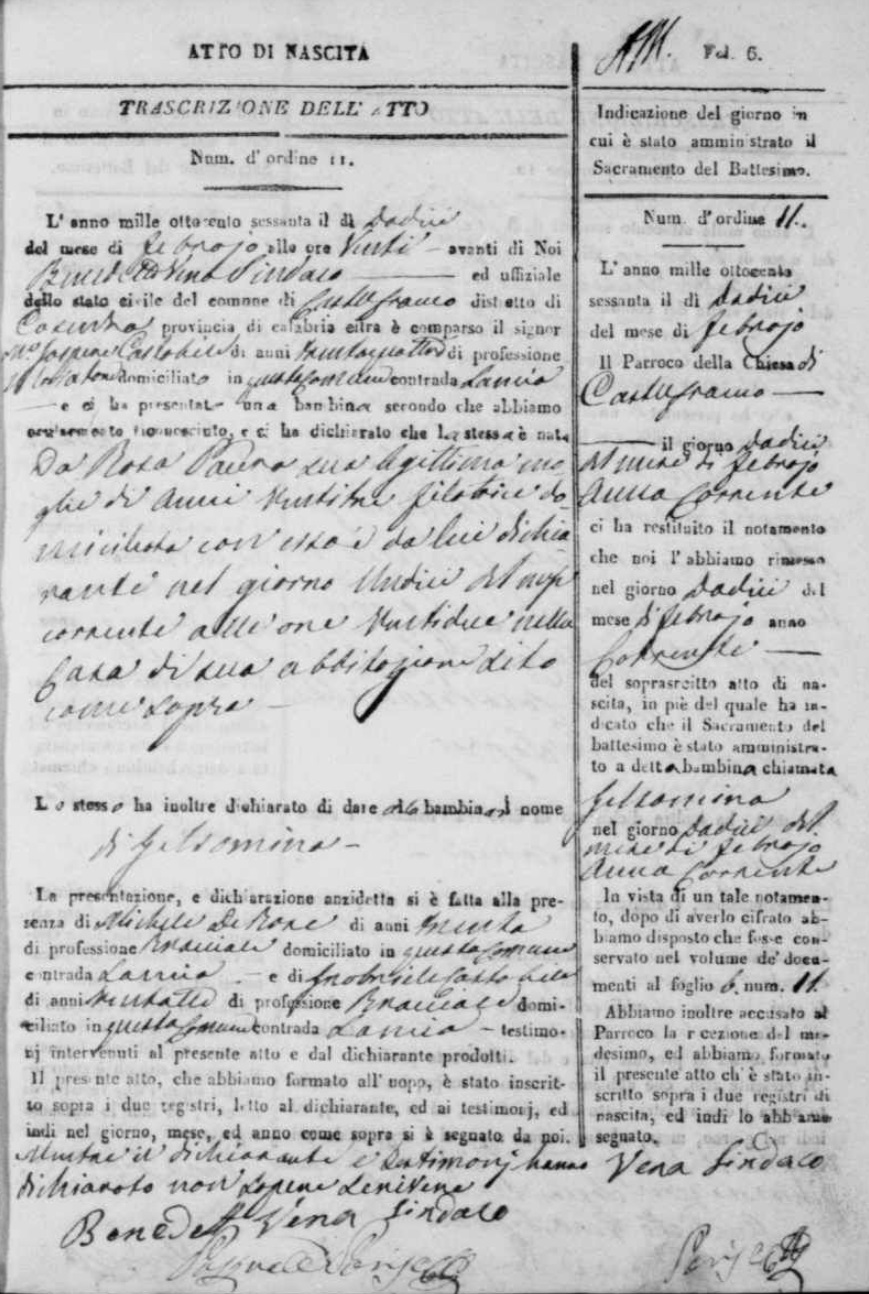 ATTO DI NASCITA
TRASCRIZ'ONE DELL' ATTO
Num. d' ordine 11.
L' anno mille ottocento sessanta il dì Dodici
del mese di febrajo alle ore Venti — avanti di Noi
Benedetto Vena Sindaco — ed uffiziale
dello stato civile del comune di Castelfranco distretto di
Cosenza provincia di calabria citra è comparso il signor
di anni trentaquattro di professione
domiciliato in questo Comune contrada
— e ci ha presentato una bambina secondo che abbiamo
ocularmente riconosciuto, e ci ha dichiarato che la stessa è nata
Da Rosa sua legittima mo
glie di anni ventitre filatrice do
miciliata con esso e da lui dichia
rante nel giorno Undici del mese
corrente alle ore ventidue nella
Casa di sua abbitazione sito
come sopra —
Lo stesso ha inoltre dichiarato di dare alla bambina il nome
di Gelsomina —
La presentazione, e dichiarazione anzidetta si è fatta alla pre-
senza di Michele De Rose di anni trenta
di professione Bracciale domiciliato in questo Comune
contrada — e di
di anni di professione Bracciale domi-
ciliato in questo Comune contrada — testimo-
nj intervenuti al presente atto e dal dichiarante prodotti.
Il presente atto, che abbiamo formato all' uopo, è stato inscrit-
to sopra i due registri, letto al dichiarante, ed ai testimonj, ed
indi nel giorno, mese, ed anno come sopra si è segnato da noi.
il dichiarante e testimonj hanno
dichiarato non sapere scrivere
Benedetto Vena Sindaco
Fol. 6.
Indicazione del giorno in
cui è stato amministrato il
Sacramento del Battesimo.
Num. d' ordine 11.
L' anno mille ottocento
sessanta il dì Dodici
del mese di febrajo
Il Parroco della Chiesa di
Castelfranco —
— il giorno Dodici
del mese di febrajo
Anno Corrente
ci ha restituito il notamento
che noi l' abbiamo rimesso
nel giorno Dodici del
mese di febrajo anno
Corrente —
del soprascritto atto di na-
scita, in piè del quale ha in-
dicato che il Sacramento del
battesimo è stato amministra-
to a detta bambina chiamata
Gelsomina
nel giorno Dodici del
mese di febrajo
Anno Corrente
In vista di un tale notamen-
to, dopo di averlo cifrato ab-
biamo disposto che fosse con-
servato nel volume de' docu-
menti al foglio 6. num. 11.
Abbiamo inoltre accusato al
Parroco la recezione del me-
desimo, ed abbiamo formato
il presente atto ch' è stato in-
scritto sopra i due registri di
nascita, ed indi lo abbiamo
segnato.
Vena Sindaco